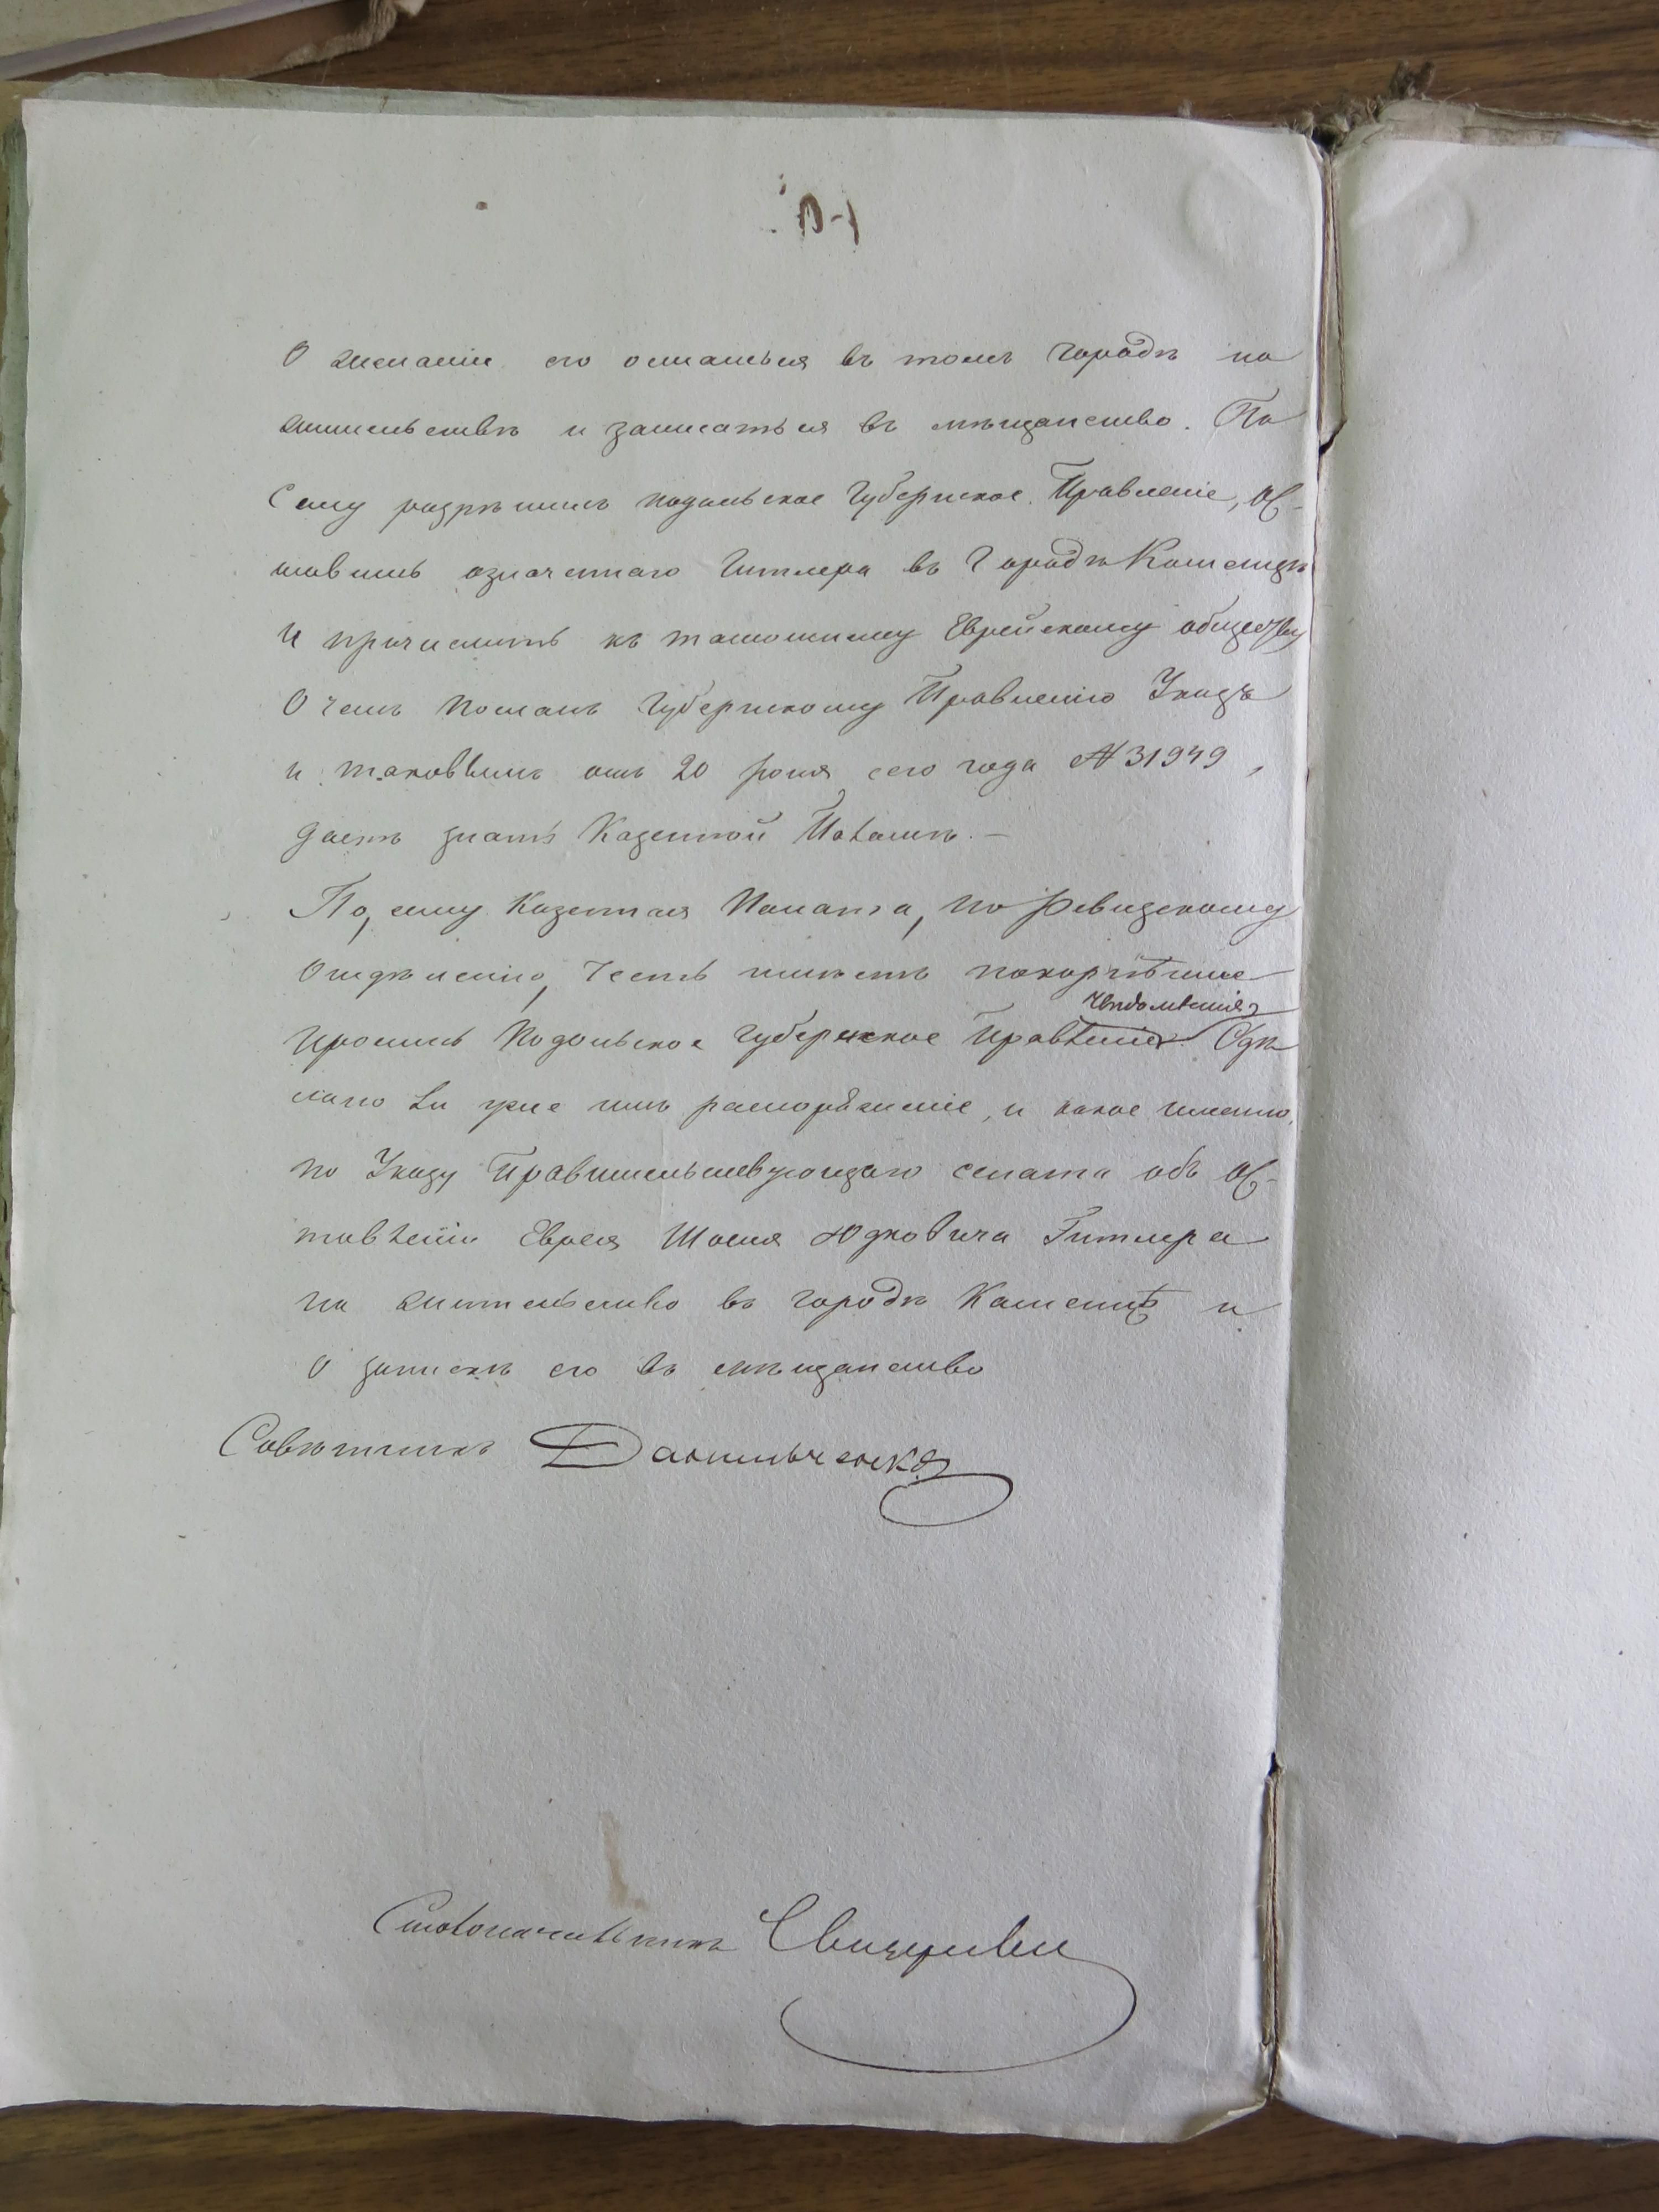 О желаніи его остаться въ томъ городѣ на
жительствѣ и записаться въ мѣщанство. По
Сему разрѣшилъ Подольское Губернское Правленіе, ос-
тавить означеннаго Гитлера въ Городѣ Каменцѣ
И причислить къ тамошнему Еврейскому обществу
О чемъ Посланъ Губернскому Правленію Указъ
и таковымъ отъ 20 Іюня сего года № 31949,
даетъ знать Казенной Палатѣ. —
По, сему Казенная Палата, по Ревизскому
Отдѣленію, Честь имѣетъ покорнѣйше
увѣдомленія
просить Подольское Губернское Правленіе Сдѣ
лано ли уже имъ распоряженіе, и какое именно,
по Указу Правительствующаго сената объ ос-
тавленіи Еврея Шоеля Юдковича Гитлера
на жительство въ городѣ Каменцѣ и
О запискѣ его въ мѣщанство
Совѣтникъ Данильченко
Столоначальникъ